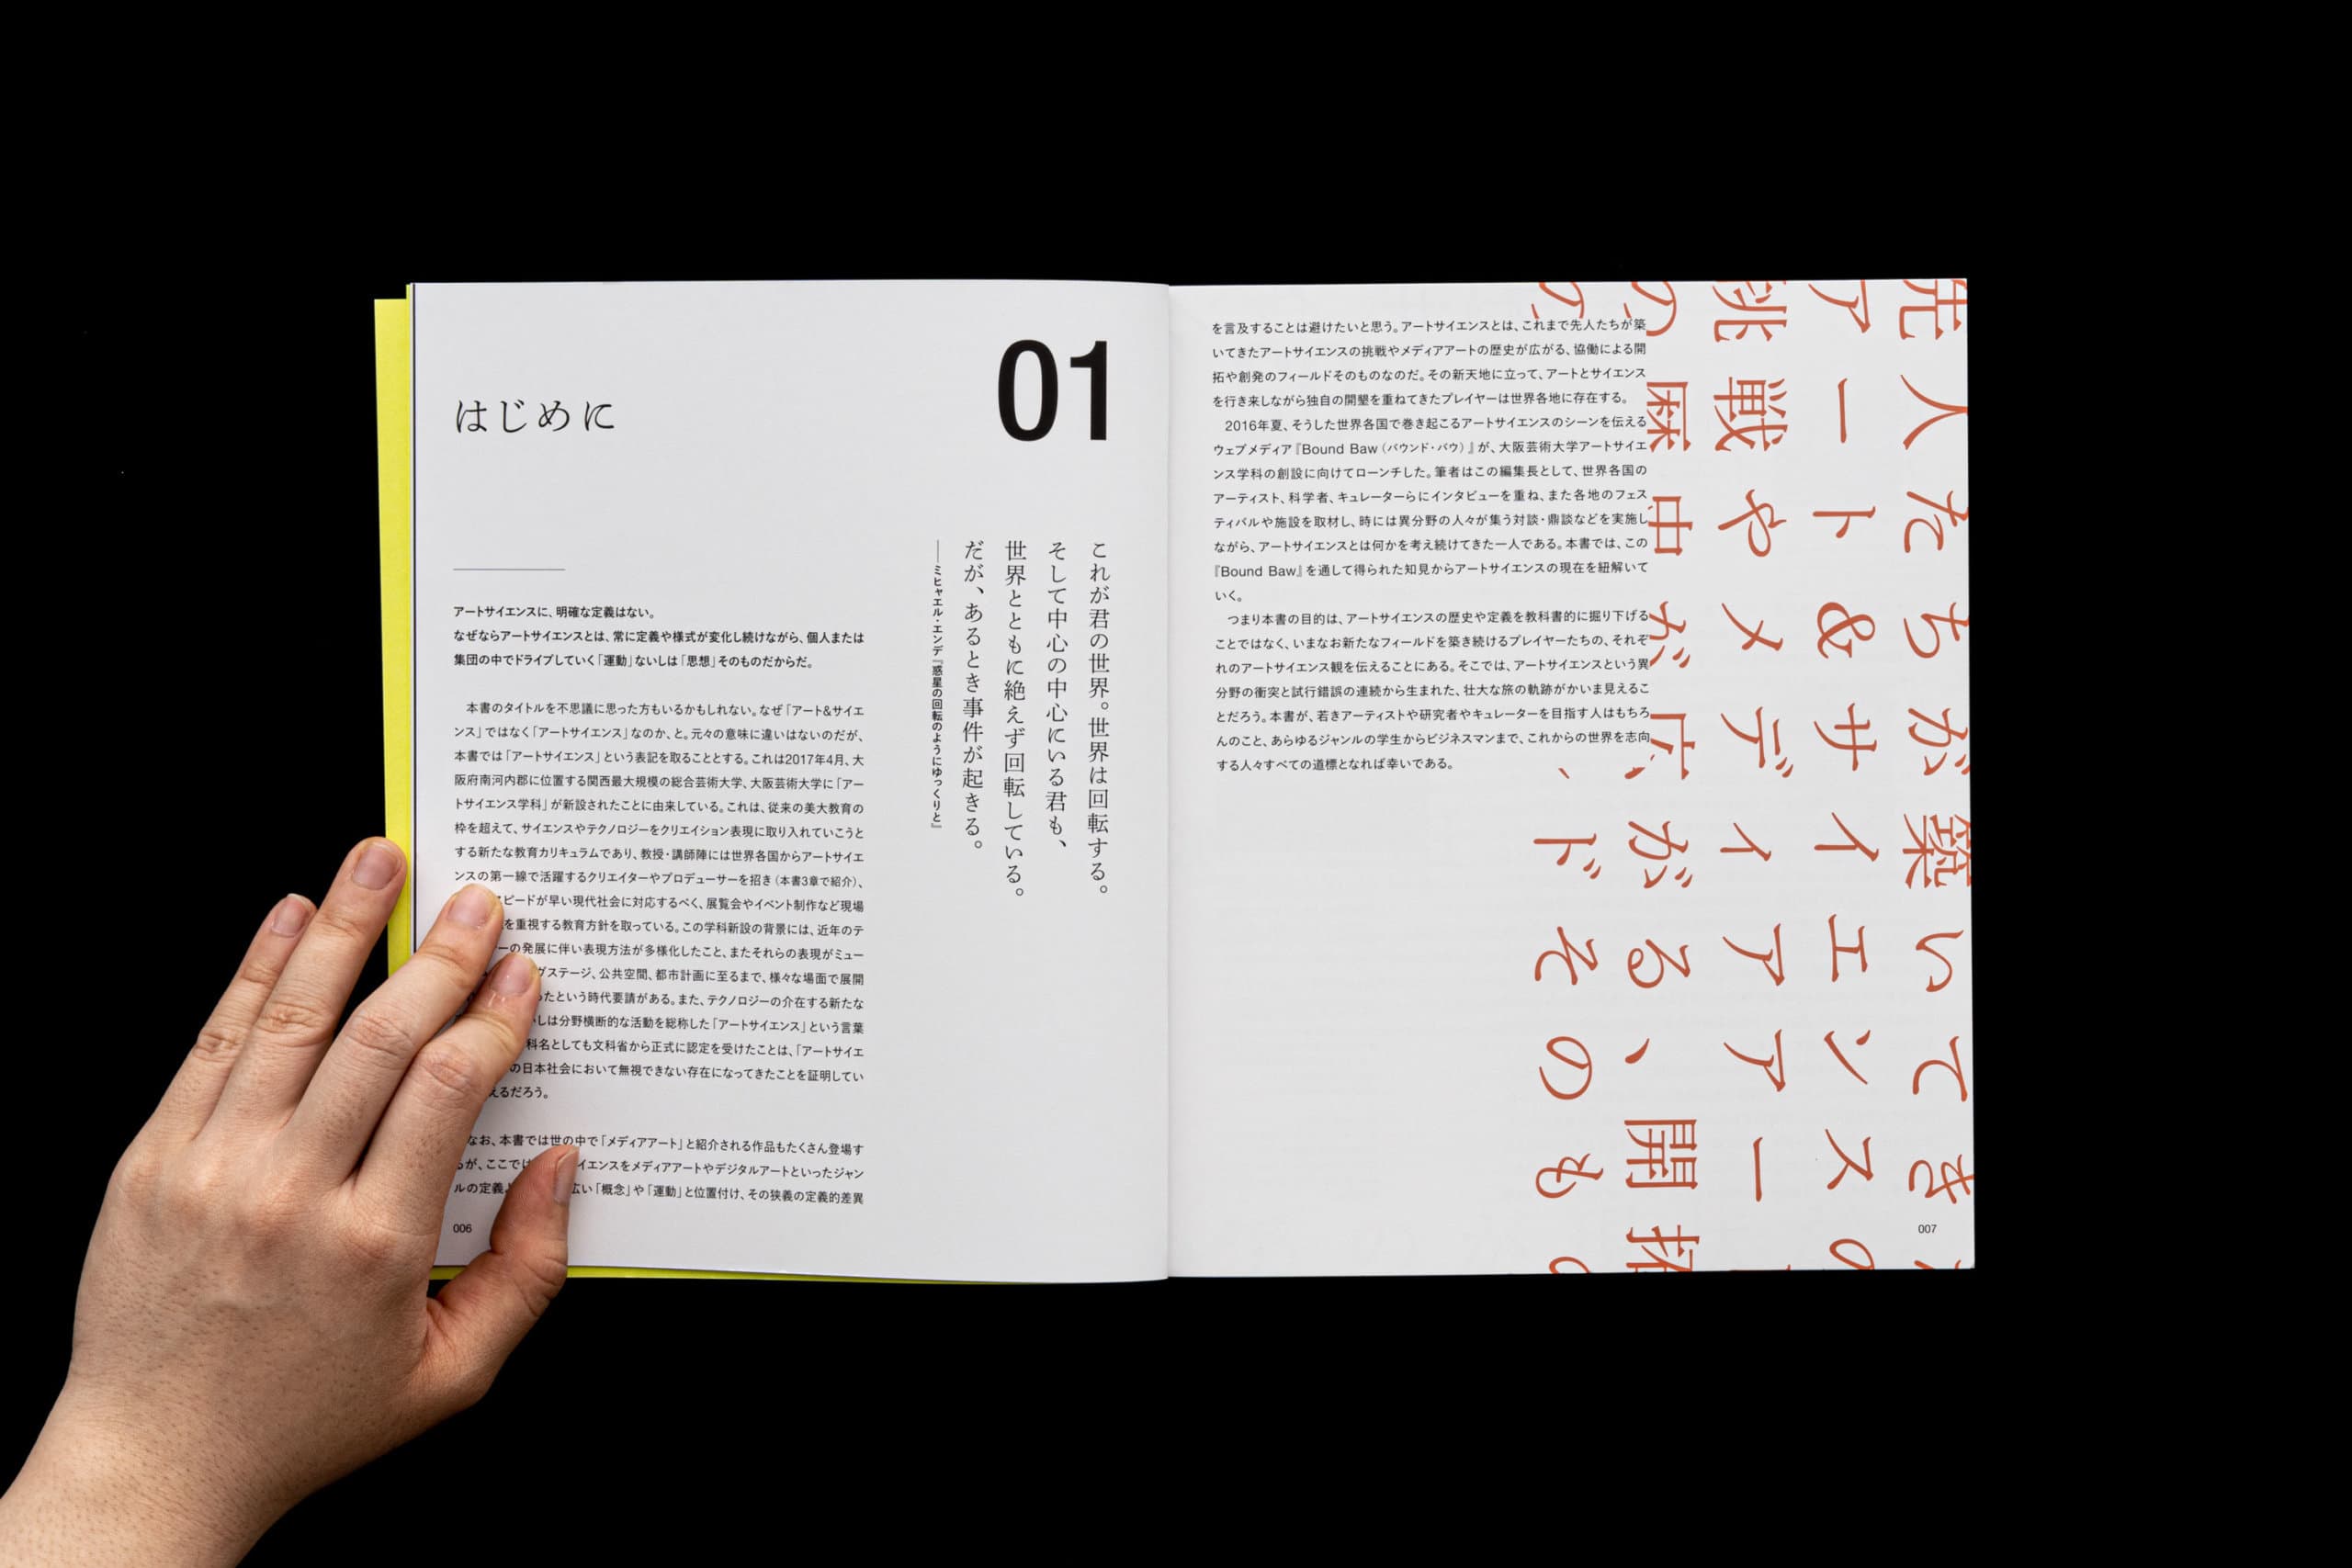 01
はじめに
これが君の世界。世界は回転する。
そして中心の中心にいる君も、
世界とともに絶えず回転している。
だが、あるとき事件が起きる。
──ミヒャエル・エンデ『惑星の回転のようにゆっくりと』
アートサイエンスに、明確な定義はない。
なぜならアートサイエンスとは、常に定義や様式が変化し続けながら、個人または
集団の中でドライブしていく「運動」ないしは「思想」そのものだからだ。
本書のタイトルを不思議に思った方もいるかもしれない。なぜ「アート&サイエ
ンス」ではなく「アートサイエンス」なのか、と。元々の意味に違いはないのだが、
本書では「アートサイエンス」という表記を取ることとする。これは2017年4月、大
阪府南河内郡に位置する関西最大規模の総合芸術大学、大阪芸術大学に「アー
トサイエンス学科」が新設されたことに由来している。これは、従来の美大教育の
枠を超えて、サイエンスやテクノロジーをクリエイション表現に取り入れていこうと
する新たな教育カリキュラムであり、教授・講師陣には世界各国からアートサイエ
ンスの第一線で活躍するクリエイターやプロデューサーを招き(本書3章で紹介)、
ピードが早い現代社会に対応するべく、展覧会やイベント制作など現場
を重視する教育方針を取っている。この学科新設の背景には、近年のテ
ーの発展に伴い表現方法が多様化したこと、またそれらの表現がミュー
グステージ、公共空間、都市計画に至るまで、様々な場面で展開
ったという時代要請がある。また、テクノロジーの介在する新たな
いしは分野横断的な活動を総称した「アートサイエンス」という言葉
科名としても文科省から正式に認定を受けたことは、「アートサイエ
の日本社会において無視できない存在になってきたことを証明してい
えるだろう。
なお、本書では世の中で「メディアアート」と紹介される作品もたくさん登場す
るが、ここでは イエンスをメディアアートやデジタルアートといったジャン
ルの定義 広い「概念」や「運動」と位置付け、その狭義の定義的差異
006
を言及することは避けたいと思う。アートサイエンスとは、これまで先人たちが築
いてきたアートサイエンスの挑戦やメディアアートの歴史が広がる、協働による開
拓や創発のフィールドそのものなのだ。その新天地に立って、アートとサイエンス
を行き来しながら独自の開墾を重ねてきたプレイヤーは世界各地に存在する。
2016年夏、そうした世界各国で巻き起こるアートサイエンスのシーンを伝える
ウェブメディア『Bound Baw(バウンド・バウ)』が、大阪芸術大学アートサイエ
ンス学科の創設に向けてローンチした。筆者はこの編集長として、世界各国の
アーティスト、科学者、キュレーターらにインタビューを重ね、また各地のフェス
ティバルや施設を取材し、時には異分野の人々が集う対談・鼎談などを実施し
ながら、アートサイエンスとは何かを考え続けてきた一人である。本書では、この
『Bound Baw』を通して得られた知見からアートサイエンスの現在を紐解いて
いく。
つまり本書の目的は、アートサイエンスの歴史や定義を教科書的に掘り下げる
ことではなく、いまなお新たなフィールドを築き続けるプレイヤーたちの、それぞ
れのアートサイエンス観を伝えることにある。そこでは、アートサイエンスという異
分野の衝突と試行錯誤の連続から生まれた、壮大な旅の軌跡がかいま見えるこ
とだろう。本書が、若きアーティストや研究者やキュレーターを目指す人はもちろ
んのこと、あらゆるジャンルの学生からビジネスマンまで、これからの世界を志向
する人々すべての道標となれば幸いである。
先人たちが築いてき
アート&サイエンスの
挑戦やメディアアー
が広がる、開拓
ドそのもの
007